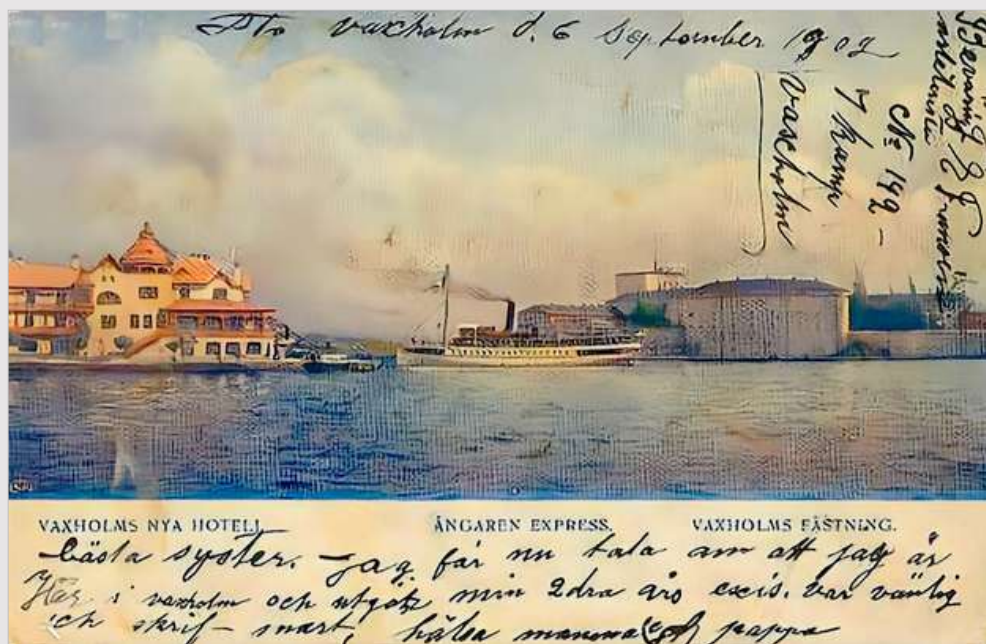 vaxholm d. 6 September 1902
Beväring
No 142 –
7 komp
Vaxholm
VAXHOLMS NYA HOTELL.
ÅNGAREN EXPRESS.
VAXHOLMS FÄSTNING.
bästa syster. – Jag får nu tala om att jag är
Här i vaxholm och utgör min 2dra års excis. var vänlig
och skrif – snart, hälsa mamma & pappa